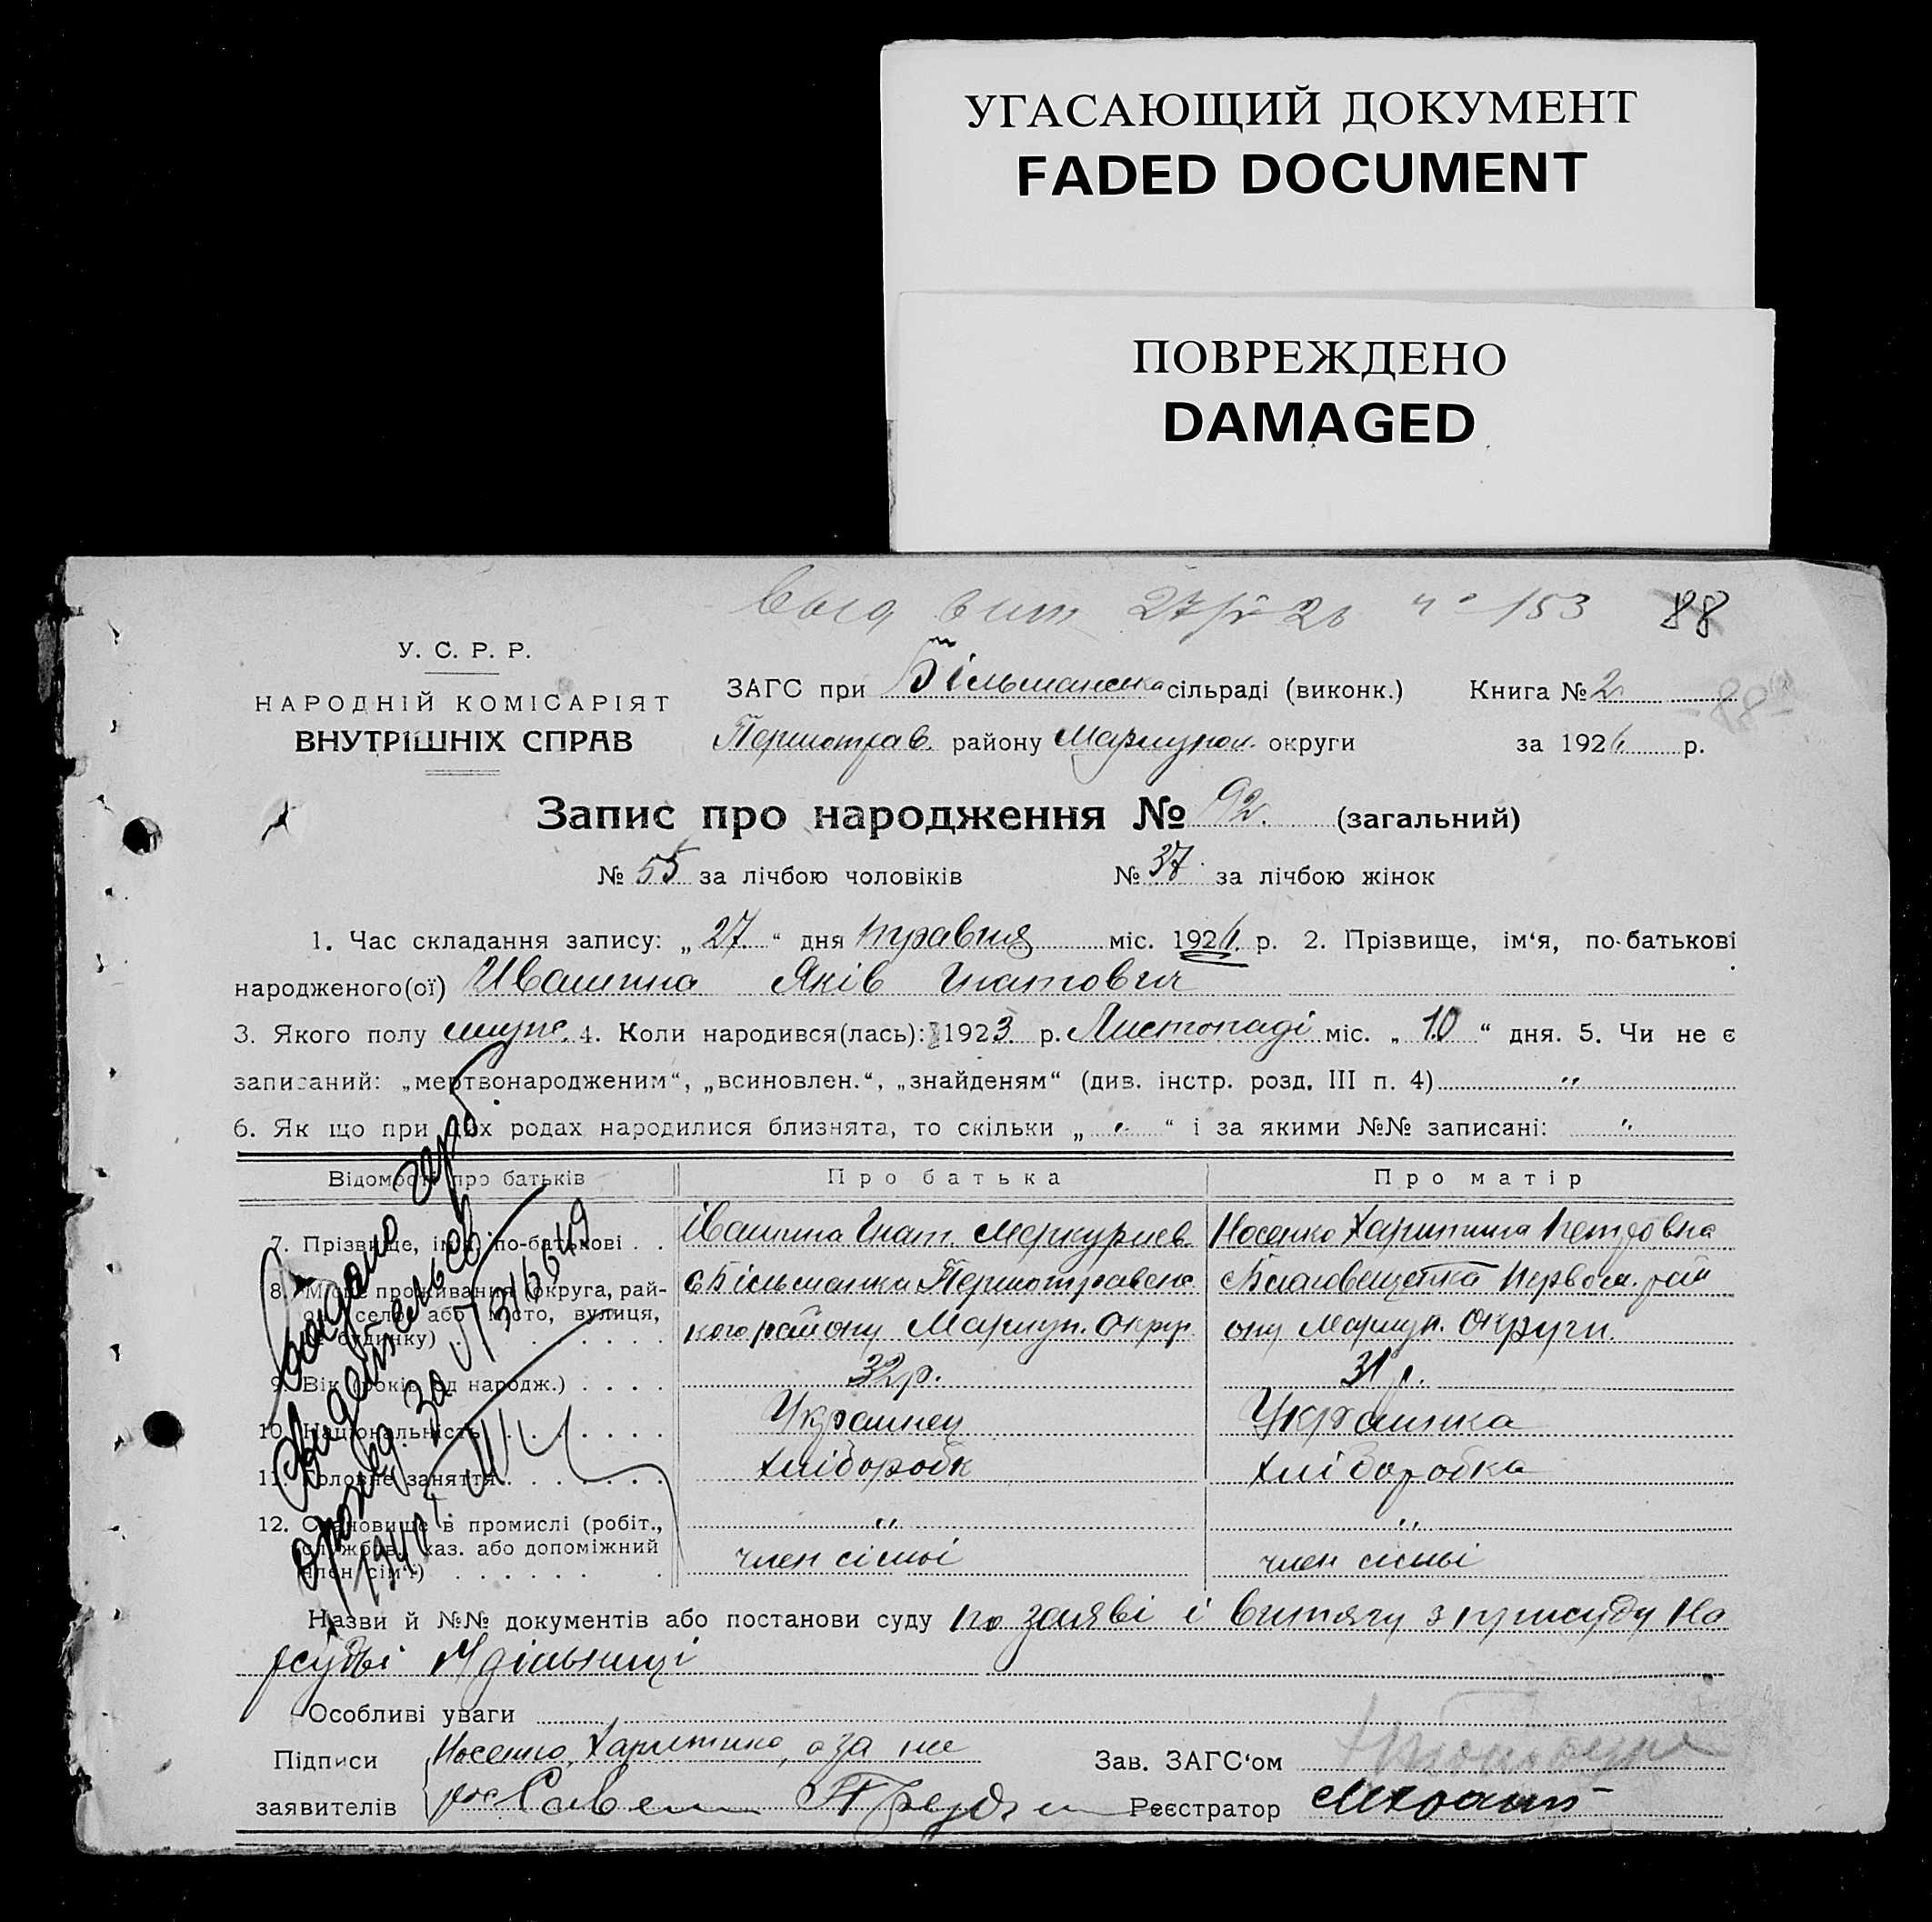 УГАСАЮЩИЙ ДОКУМЕНТ
FADED DOCUMENT
ПОВРЕЖДЕНО
DAMAGED
№ 153 88
У. С. Р. Р.
НАРОДНІЙ КОМІСАРІЯТ
ВНУТРІШНІХ СПРАВ
ЗАГС при Більманська сільраді (виконк.) Книга № 2
Першотрав. району Мариупол. округи за 1926 р.
Запис про народження № 92. (загальний)
№ 55 за лічбою чоловіків № 37 за лічбою жінок
1. Час складання запису: „ 27 “ дня травня міс. 1926 р. 2. Прізвище, ім‘я, по-батькові
народженого(ої) Ивашина Яків Гнатович
3. Якого полу муж. 4. Коли народився(лась): 1923 р. Листопаді міс. „ 10 “ дня. 5. Чи не є
записаний: „мертвонародженим“, „всиновлен.“, „знайденям“ (див. інстр. розд. III п. 4) "
6. Як що при цих родах народилися близнята, то скільки „ " “ і за якими №№ записані: "
Відомості про батьків Про батька Про матір
7. Прізвище, ім‘я, по-батькові . . Івашина Гнат. Меркуриев. Носенко Харитина Петровна
8. Місце проживання (округа, рай- с Більманки Першотравенс
он, село або місто, вулиця,
№ будинку) кого району Мариуп. Округ. ону Мариуп. Округи.
9. Вік (років од народж.) . . . . 32 р. 31 р.
10. Національність . . . . Украинец Украинка
11. Головне заняття . . . . Хліборобк Хліборобка
12. Становище в промислі (робіт., " "
службов., хаз. або допоміжний
член сім‘ї) . . . . . . член сімьї член сімьї
Назви й №№ документів або постанови суду по заяві і витягу з присуду На
рсудві дільниці
Особливі уваги
Підписи Носенко, Харитина, а за не
заявителів
Зав. ЗАГС‘ом
Реєстратор
Видано
Свидетельсв.